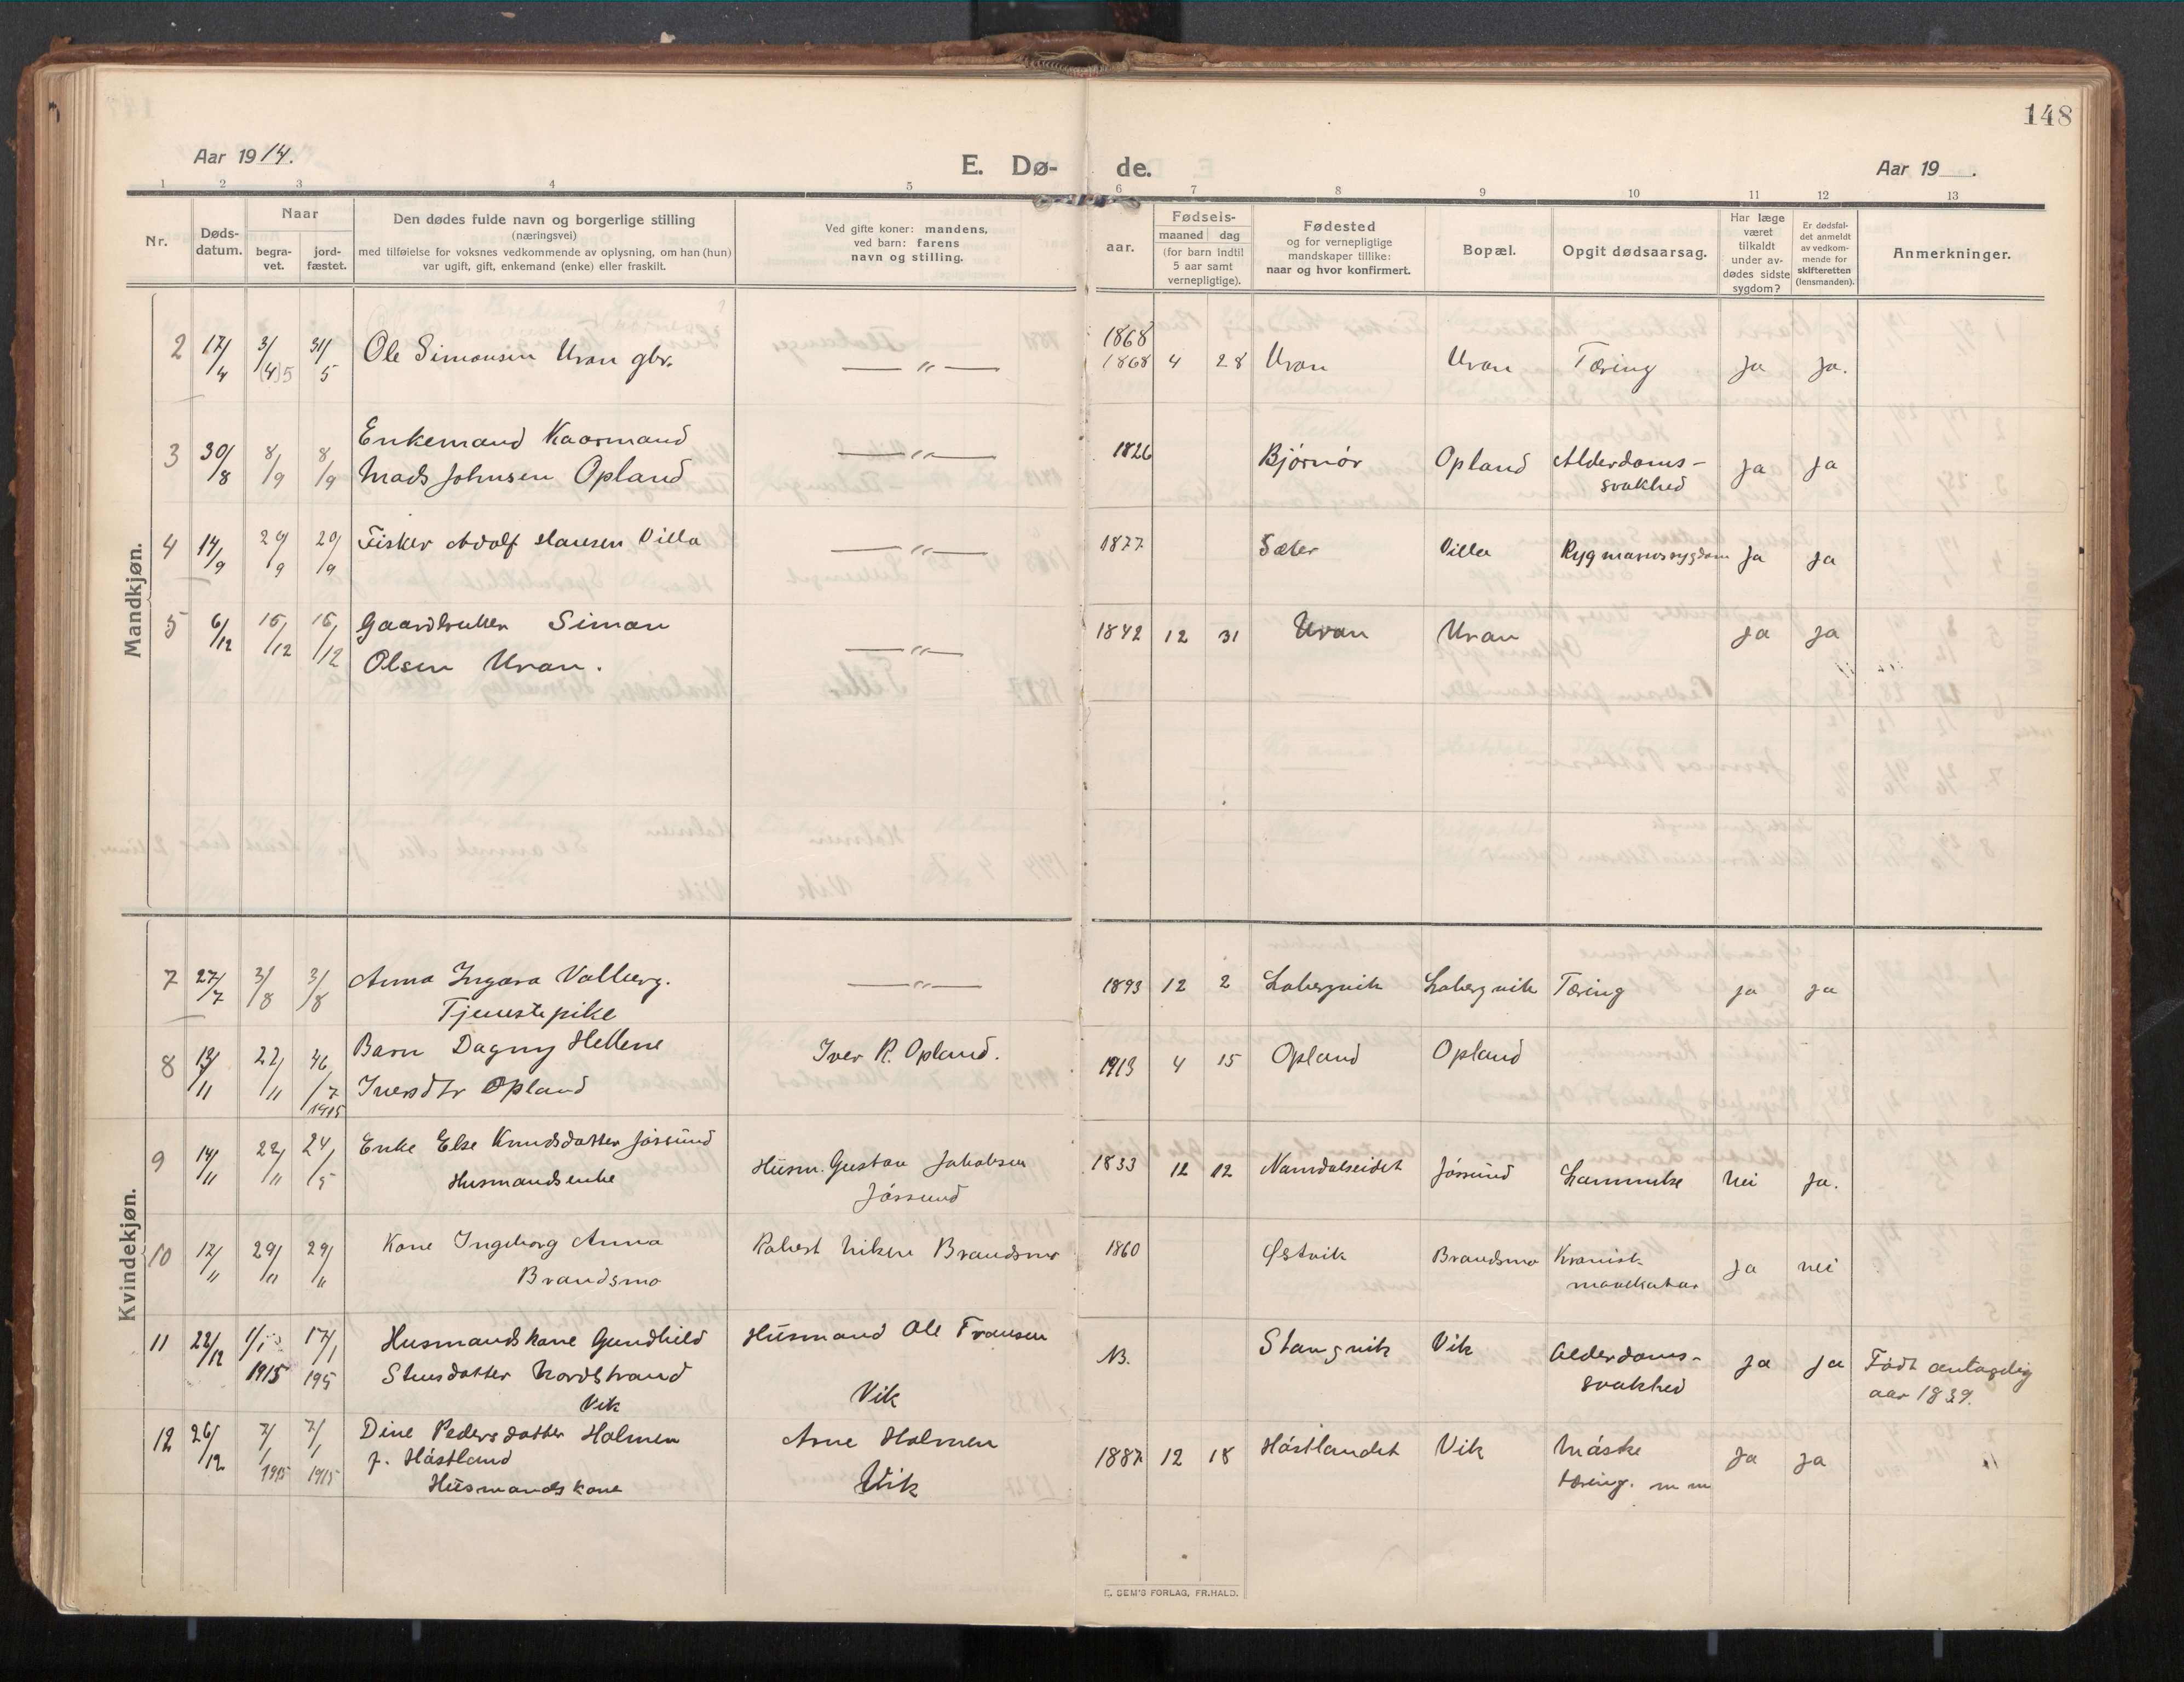 148
Aar 1914.
E. Dø-
de.
Aar 19 .
1 2 3 4 5 6 7 8 9 10 11 12 13
Nr.
Døds-
datum.
Naar
begra-
vet.
jord-
fæstet.
Den dødes fulde navn og borgerlige stilling
(næringsvei)
med tilføielse for voksnes vedkommende av oplysning, om han (hun)
var ugift, gift, enkemand (enke) eller fraskilt.
Ved gifte koner: mandens,
ved barn: farens
navn og stilling.
aar.
Fødsels-
maaned dag
(for barn indtil
5 aar samt
vernepligtige).
Fødested
og for vernepligtige
mandskaper tillike:
naar og hvor konfirmert.
Bopæl.
Opgit dødsaarsag.
Har læge
været
tilkaldt
under av-
dødes sidste
sygdom?
Er dødsfal-
det anmeldt
av vedkom-
mende for
skifteretten
(lensmanden).
Anmerkninger.
Mandkjøn.
1868
2 17/4 3/(4)5 31/5 Ole Simonsen Uran gbr. —〃— 1868 4 28 Uran Uran Tæring Ja Ja.
Enkemand Kaarmand
3 30/8 8/9 8/9 Mads Johnsen Opland —〃— 1826 Bjørnør Opland Alderdoms- Ja Ja
svakhed
4 14/9 20/9 20/9 Fisker Adolf Hansen Villa —〃— 1877 Sæter Villa Rygmarvssygdom Ja Ja
5 6/12 16/12 16/12 Gaardbruker Simon —〃— 1842 12 31 Uran Uran Ja Ja
Olsen Uran.
Kvindekjøn.
7 27/7 3/8 3/8 Anna Ingara Valberg. —〃— 1893 12 2 Labergvik Labergvik Tæring Ja Ja
Tjenestepike
8 13/11 22/11 26/7 1915 Barn Dagny Hellene Iver R. Opland. 1913 4 15 Opland Opland
Iversdtr Opland
9 14/11 22/11 24/5 Enke Else Knudsdatter Jøssund Husm. Gustav Jakobsen 1833 12 12 Namdalseidet Jøssund Lammelse Nei Ja.
Husmandsenke Jøssund
10 17/11 29/11 29/11 Kone Ingeborg Anna 1860 Østvik Brandsmo Kronisk Ja nei
Brandsmo Robert Brandsmo mavekatar
11 22/12 1/1 1915 17/1 195 Husmandskone Gundhild Husmand Ole Fransen NB. Stangvik Vik Alderdoms- Ja Ja Født antagelig
Nordstrand svakhed aar 1839.
Vik Vik
12 26/12 7/1 1915 7/1 1915 Dine Pedersdatter Holmen Arne Holmen 1887 12 18 Håstlandet Vik Måske Ja Ja
f. Håstland Vik tæring. m m
Husmandskone
E. SEM'S FORLAG, FR.HALD.